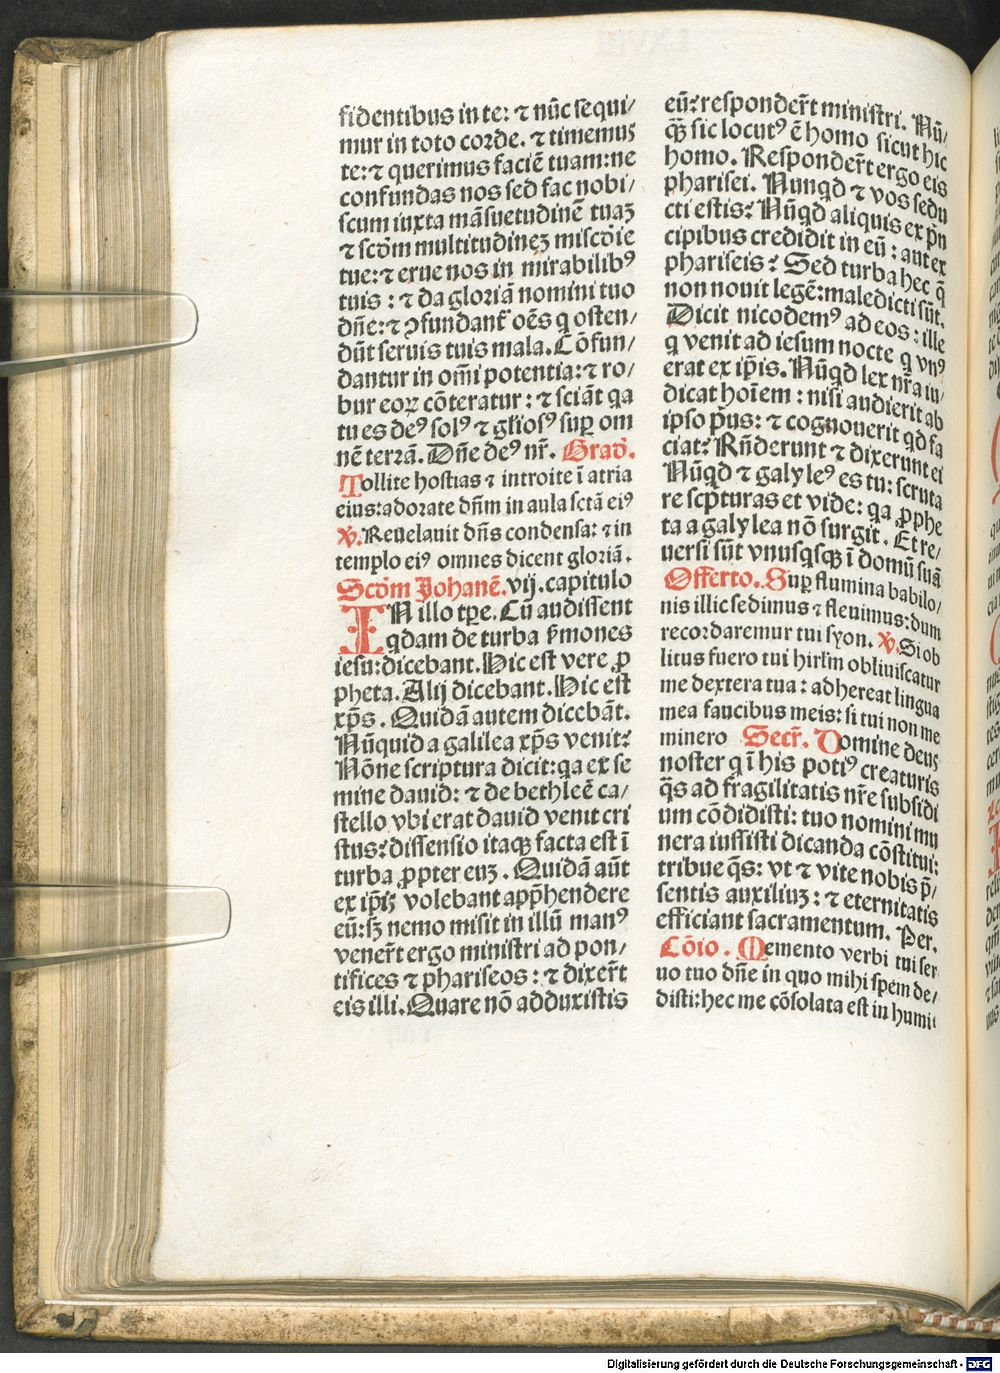 fidentibus in te: ⁊ nūc sequi/
mur in toto corde. ⁊ timemus
te: ⁊ querimus faciē tuam: ne
confundas nos sed fac nobi/
scum iuxta māsuetudinē tuaꝫ
⁊ scd̄m multitudineꝫ mīscd̄ie
tue: ⁊ erue nos in mirabilibꝰ
tuis: ⁊ da gloriā nomini tuo
dn̄e: ⁊ ꝯfundant᷑ oēs q̇ osten/
dūt seruis tuis mala. Cōfun/
dantur in om̄i potentia: ⁊ ro/
bur eoꝝ cōteratur: ⁊ sciāt qa
tu es deꝰ solꝰ ⁊ gl̄iosꝰ suꝑ om
nē terrā. Dn̄e deꝰ nr̄. Grad̄.
Tollite hostias ⁊ introite ī atria
eius: adorate dn̄m in aula sctā eiꝰ
℣. Reuelauit dn̄s condensa: ⁊ in
templo eiꝰ omnes dicent gloriā.
Scd̄m Johanē. vij. capitulo
IN illo tꝑe. Cū audissent
qdam de turba ẜmones
iesu: dicebant. Hic est vere ꝓ
pheta. Alij dicebant. Hic est
xp̄s. Quidā autem dicebāt.
Nūquid a galilea xp̄s venit?
Nōne scriptura dicit: qa ex se
mine dauid: ⁊ de bethleē ca/
stello vbi erat dauid venit cri
stus? dissensio itaqꝫ facta est ī
turba ꝓpter euꝫ. Quidā aūt
ex ip̄iꝫ volebant app̄hendere
eū: sꝫ nemo misit in illū manꝰ
venerūt ergo ministri ad pon/
tifices ⁊ phariseos: ⁊ dixer̄t
eis illi. Quare nō adduxistis
eū? responder̄t ministri. Nū/
qꝫ sic locutꝰ ē homo sicut hic
homo. Responder̄t ergo eis
pharisei. Nunqd ⁊ vos sedu
cti estis? Nūqd aliquis ex pn̄
cipibus credidit in eū: aut ex
phariseis? Sed turba hec q̄
non nouit legē: maledicti sūt.
Dicit nicodemꝰ ad eos: ille
q venit ad iesum nocte q vnꝰ
erat ex ip̄is. Nūqd lex nr̄a iu/
dicat hoīem: nisi audierit ab
ipso pͥus: ⁊ cognouerit qd fa
ciat? Rn̄derunt ⁊ dixerunt ei
Nūqd ⁊ galyleꝰ es tu: scruta
re scp̄turas et vide: qa ꝓphe
ta a galylea nō surgit. Et re/
uersi sūt vnusqsqꝫ ī domū suā
Offerto. Suꝑ flumina babilo/
nis illic sedimus ⁊ fleuimus: dum
recordaremur tui syon. ℣. Si ob
litus fuero tui hirl̄m obliuiscatur
me dextera tua: adhereat lingua
mea faucibus meis: si tui non me
minero Secr̄. Domine deus
noster q ī his potiꝰ creaturis
q̄s ad fragilitatis nr̄e subsidi
um cōdidisti: tuo nomini mu
nera iussisti dicanda cōstitui:
tribue q̄s: vt ⁊ vite nobis p̄/
sentis auxiliuꝫ: ⁊ eternitatis
efficiant sacramentum. Per.
Cōio. Memento verbi tui ser
uo tuo dn̄e in quo mihi spem de/
disti: hec me cōsolata est in humi
Digitalisierung gefördert durch die Deutsche Forschungsgemeinschaft - DFG